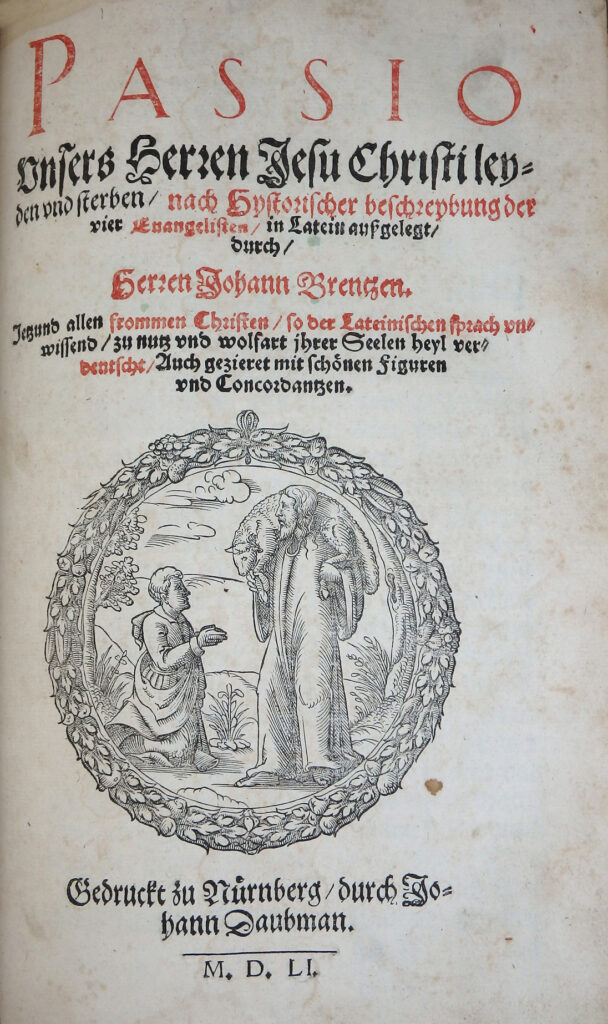 PASSIO
Vnsers Herren Jesu Christi ley-
den vnd sterben/ nach Hystorischer beschreybung der
vier Euangelisten/ in Latein außgelegt/
durch/
Herren Johann Brentzen.
Jetzund allen frommen Christen/ so der Lateinischen sprach vn-
wissend/ zu nutz vnd wolfart jhrer Seelen heyl ver-
deutscht/ Auch gezieret mit schönen Figuren
vnd Concordantzen.
Gedruckt zu Nürnberg/ durch Jo-
hann Daubman.
M. D. LI.